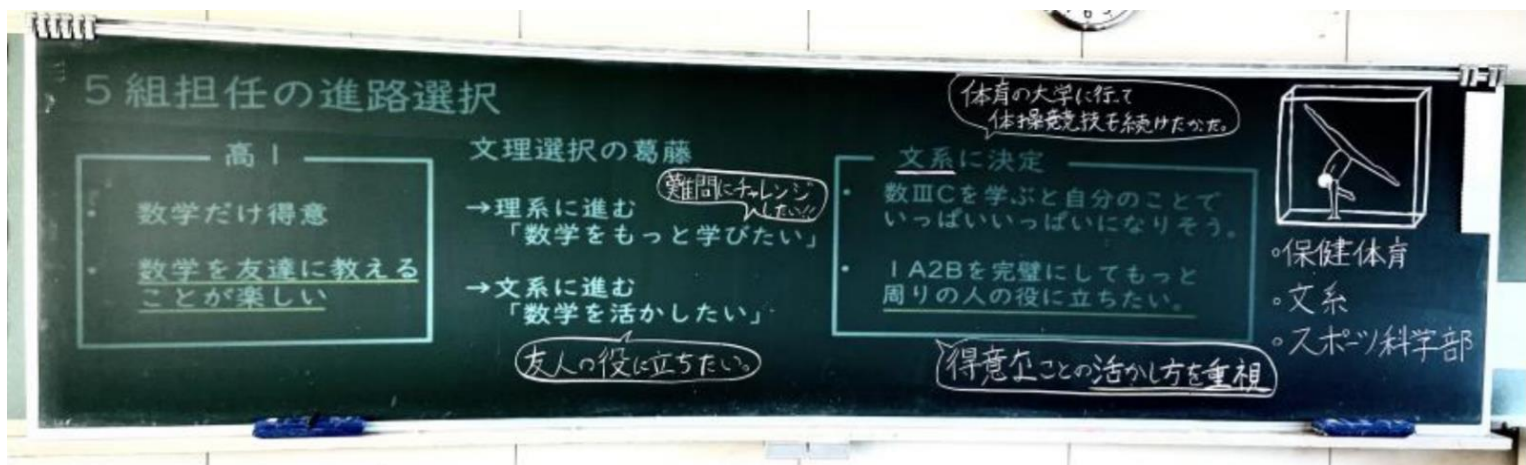 5組担任の進路選択
高1
・ 数学だけ得意
・ 数学を友達に教える
ことが楽しい
文理選択の葛藤
→理系に進む
「数学をもっと学びたい」
難問にチャレンジ
したい!!
→文系に進む
「数学を活かしたい」
友人の役に立ちたい。
体育の大学に行って
体操競技も続けたかった。
文系に決定
・ 数ⅢCを学ぶと自分のことで
いっぱいいっぱいになりそう。
・ 1A2Bを完璧にしてもっと
周りの人の役に立ちたい。
得意なことの活かし方を重視
。保健体育
。文系
。スポーツ科学部